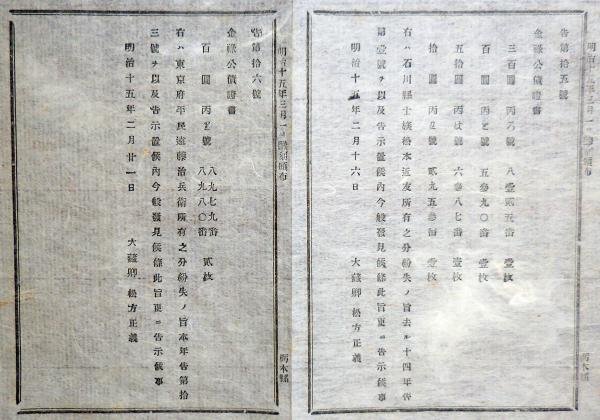 告第拾五號
金祿公債證書
三百圓 丙ろ號 八壹貳五番 壹枚
百圓 丙と號 五參九〇番 壹枚
五拾圓 丙は號 六參八七番 壹枚
拾圓 丙に號 貳九五參番 壹枚
右ハ石川縣士族松本近友所有之分紛失ノ旨去ル十四年告
第壹號ヲ以及告示置候內今般發見候條此旨更ニ告示候事
明治十五年二月十六日 大藏卿 松方正義
栃木縣
明治十五年三月一日 頒布
告第拾六號
金祿公債證書
百圓 丙と號 八九七九番
八九八〇番 貳枚
右ハ東京府平民遠藤治兵衛所有之分紛失ノ旨本年告第拾
三號ヲ以及告示置候內今般發見候條此旨更ニ告示候事
明治十五年二月廿一日 大藏卿 松方正義
栃木縣